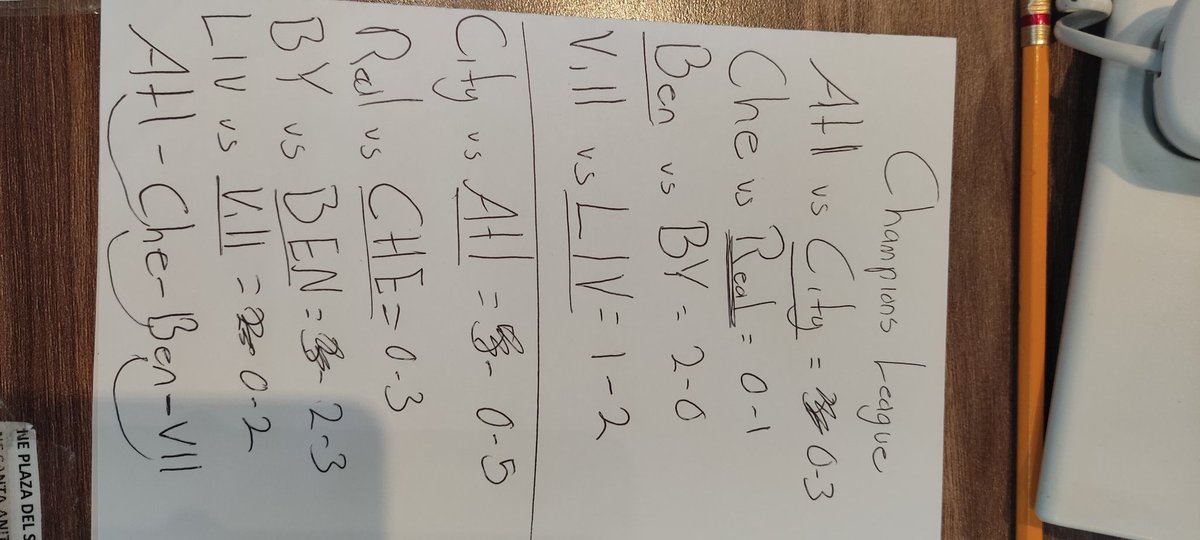 Champions League
Atl vs City = 0-3
Che vs Real = 0-1
Ben vs BY = 2-0
Vill vs LIV = 1-2
City vs Atl = 0-5
Real vs CHE = 0-3
BY vs BEN = 2-3
LIV vs Vill = 0-2
Atl - Che - Ben - Vill
NE PLAZA DEL S